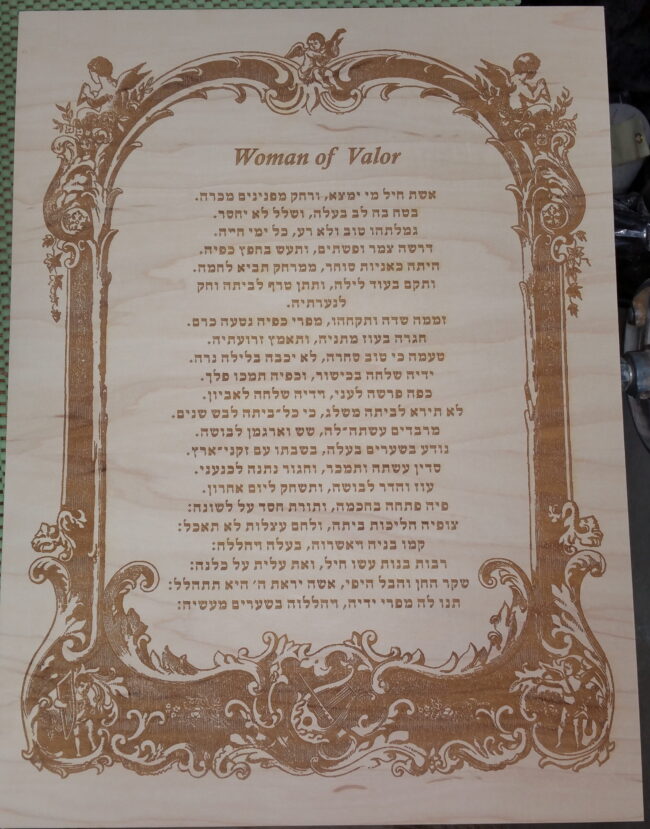 Woman of Valor
אשת חיל מי ימצא, ורחק מפנינים מכרה.
בטח בה לב בעלה, ושלל לא יחסר.
גמלתהו טוב ולא רע, כל ימי חייה.
דרשה צמר ופשתים, ותעש בחפץ כפיה.
היתה כאניות סוחר, ממרחק תביא לחמה.
ותקם בעוד לילה, ותתן טרף לביתה וחק
לנערתיה.
זממה שדה ותקחהו, מפרי כפיה נטעה כרם.
חגרה בעוז מתניה, ותאמץ זרועתיה.
טעמה כי טוב סחרה, לא יכבה בלילה נרה.
ידיה שלחה בכישור, וכפיה תמכו פלך.
כפה פרשה לעני, וידיה שלחה לאביון.
לא תירא לביתה משלג, כי כל־ביתה לבש שנים.
מרבדים עשתה־לה, שש וארגמן לבושה.
נודע בשערים בעלה, בשבתו עם זקני־ארץ.
סדין עשתה ותמכר, וחגור נתנה לכנעני.
עוז והדר לבושה, ותשחק ליום אחרון.
פיה פתחה בחכמה, ותורת חסד על לשונה:
צופיה הליכות ביתה, ולחם עצלות לא תאכל:
קמו בניה ויאשרוה, בעלה ויהללה:
רבות בנות עשו חיל, ואת עלית על כלנה:
שקר החן והבל היפי, אשה יראת ה׳ היא תתהלל:
תנו לה מפרי ידיה, ויהללוה בשערים מעשיה: